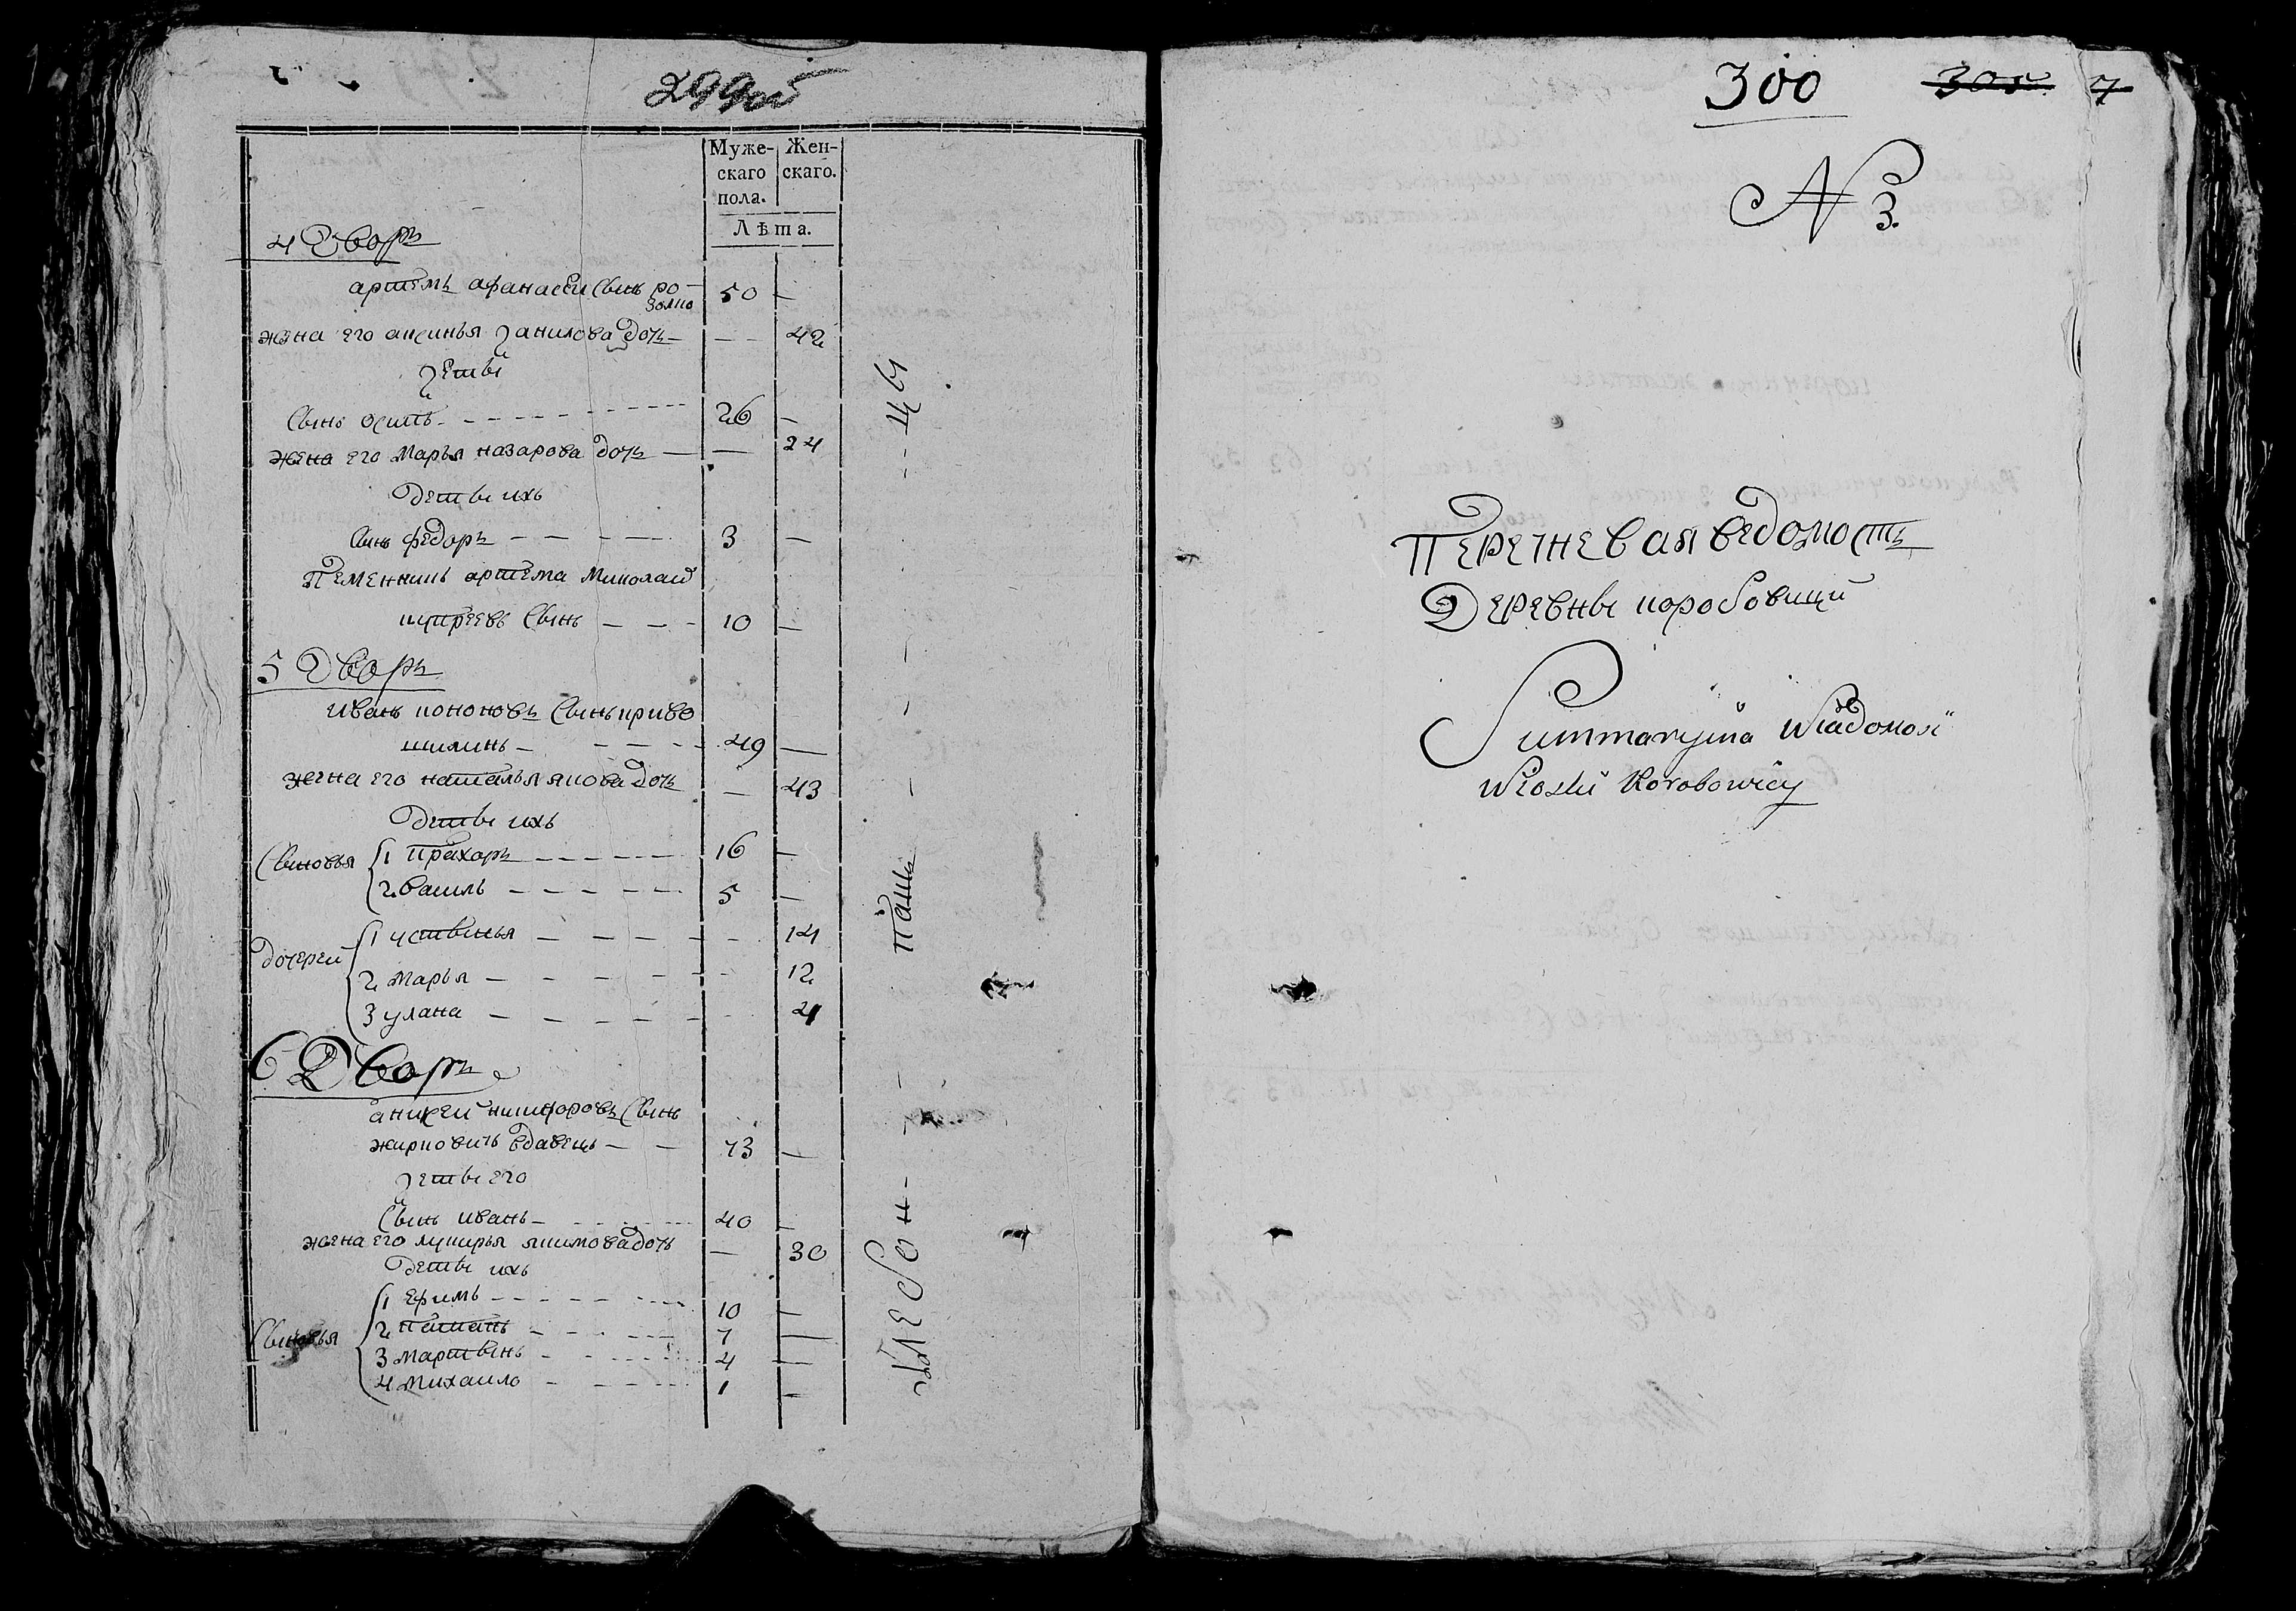 299 об
Муже-
скаго
пола.
Жен-
скаго.
Лѣта.
4 Дворъ
артемъ афанасеи Сынъ ро-
50 —
жена его аксинья данилова дочь — — — 42
дети
Сынъ осипъ - - - 26 —
жена его Марья назарова дочь — — 24
дети ихъ
Сынъ федоръ — — — 3 —
Племенникъ артема Миколай
купреевъ Сынъ — — - 10 —
5 Дворъ
иванъ кононовъ Сынъ криво
шилинъ — - - - 49 —
жена его наталья якова дочь — 43
дети ихъ
Сыновья 1 прахоръ - - - 16 —
2 василь - - - 5 —
дочереи 1 устинья — — — 14
2 Марья — — — 12
3 улана — — — 4
6 Дворъ
аникеи никифоровъ Сынъ
жирковичь вдавецъ — — 73 —
дети его
Сынъ иванъ - - - 40 —
жена его лукирья якимова дочь — 30
дети ихъ
Сыновья 1 ефимъ - - - 10 —
2 - - - 7 —
3 мартынъ - - - 4 —
4 михаило - - - 1 —
Клебон - - - панъ - - - цы
300 305 7
N 3.
Перечневая ведомость
Деревни коробовищи
Summaryina Wiadomosc
Wioski Korobowicy